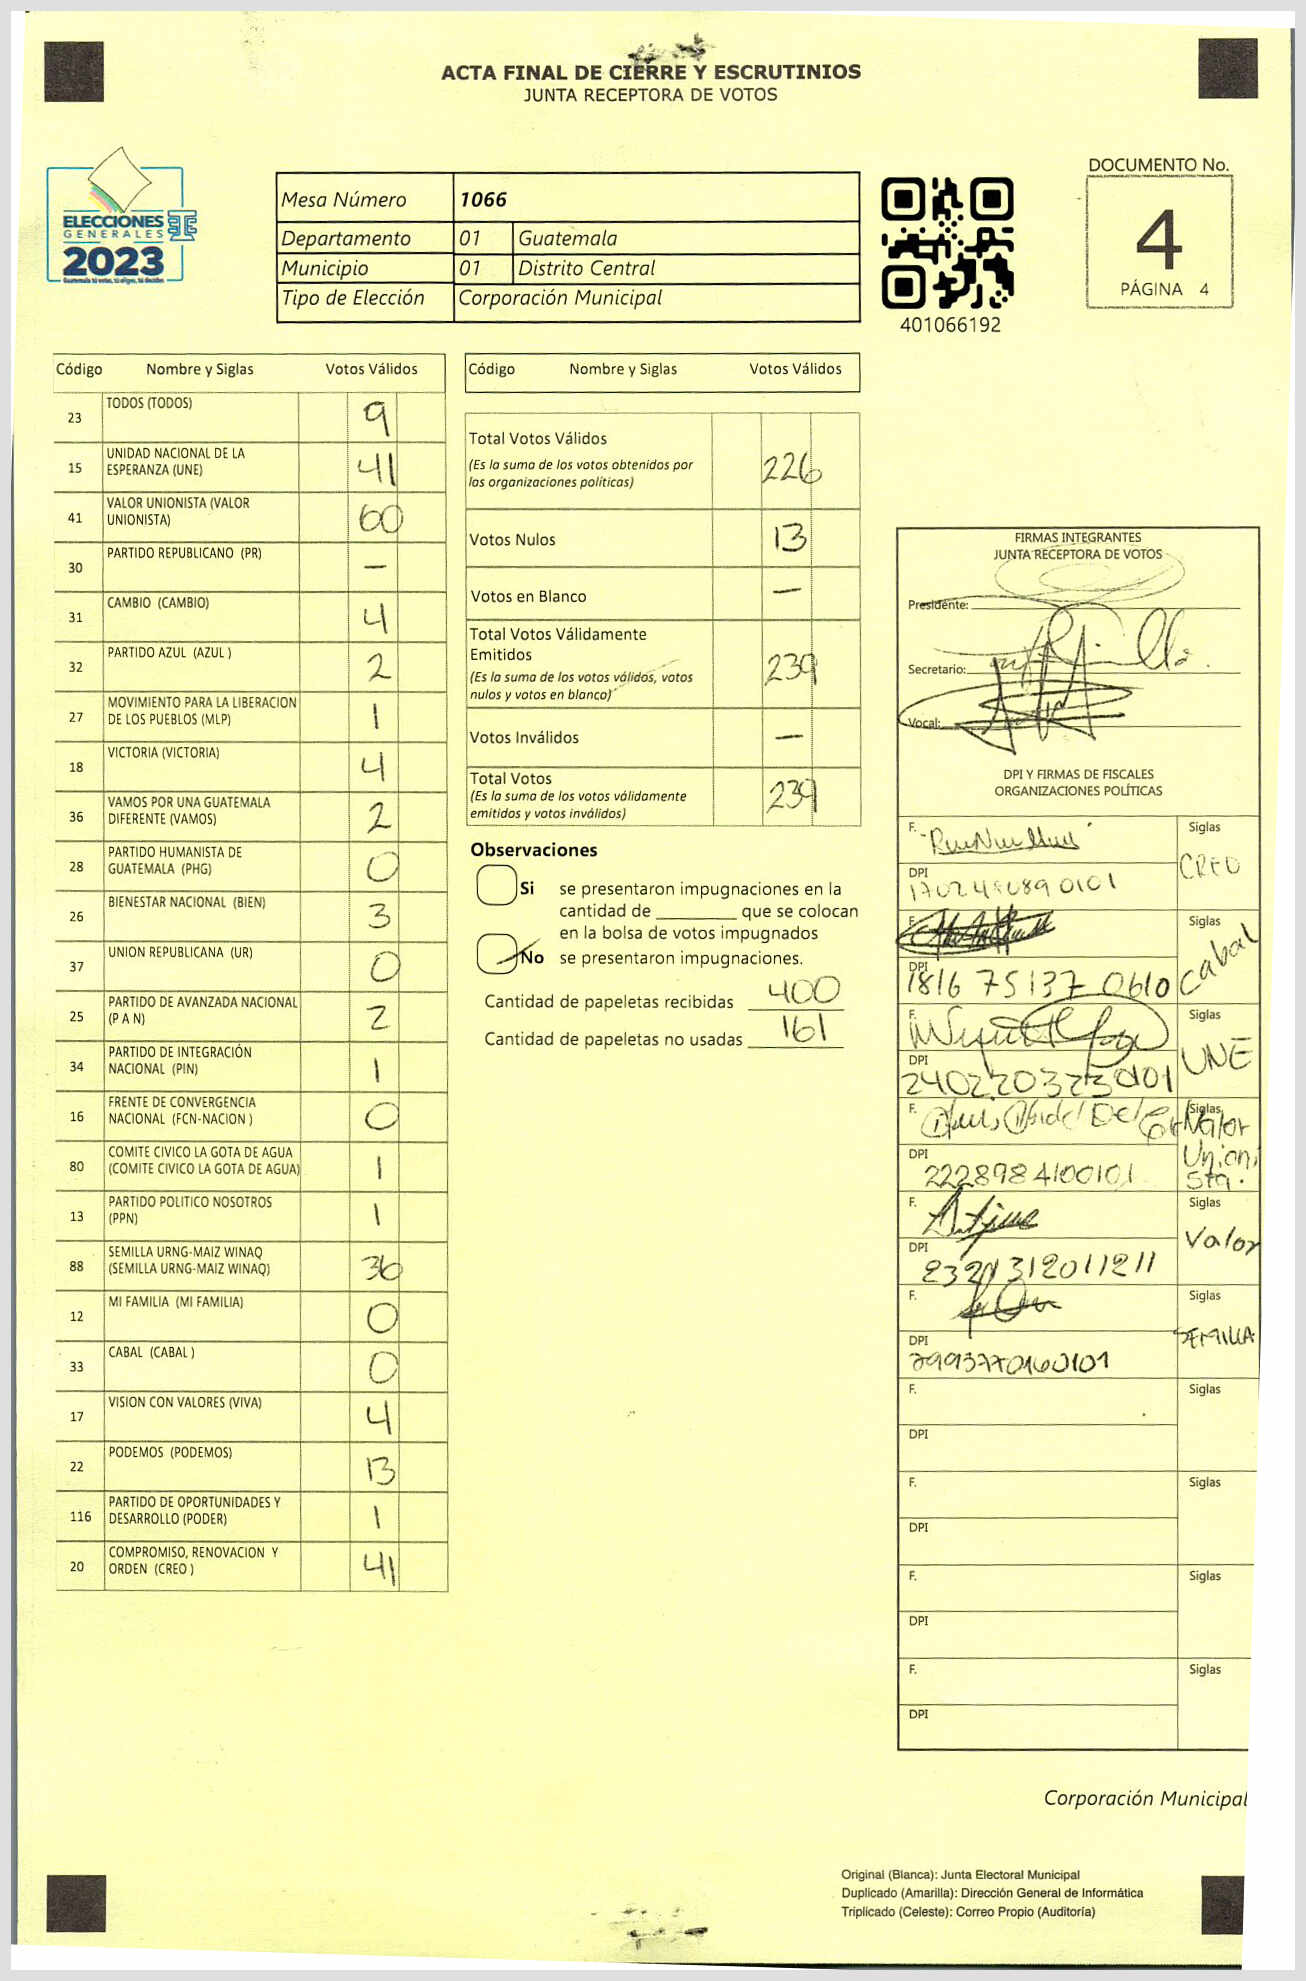 ACTA FINAL DE CIERRE Y ESCRUTINIOS
JUNTA RECEPTORA DE VOTOS
ELECCIONES
GENERALES
2023
Mesa Número 1066
Departamento 01 Guatemala
Municipio 01 Distrito Central
Tipo de Elección Corporación Municipal
401066192
DOCUMENTO No.
4
PÁGINA 4
Código Nombre y Siglas Votos Válidos
23 TODOS (TODOS) 9
15 UNIDAD NACIONAL DE LA
ESPERANZA (UNE) 41
41 VALOR UNIONISTA (VALOR
UNIONISTA) 60
30 PARTIDO REPUBLICANO (PR) —
31 CAMBIO (CAMBIO) 4
32 PARTIDO AZUL (AZUL ) 2
27 MOVIMIENTO PARA LA LIBERACION
DE LOS PUEBLOS (MLP) 1
18 VICTORIA (VICTORIA) 4
36 VAMOS POR UNA GUATEMALA
DIFERENTE (VAMOS) 2
28 PARTIDO HUMANISTA DE
GUATEMALA (PHG) 0
26 BIENESTAR NACIONAL (BIEN) 3
37 UNION REPUBLICANA (UR) 0
25 PARTIDO DE AVANZADA NACIONAL
(P A N) 2
34 PARTIDO DE INTEGRACIÓN
NACIONAL (PIN) 1
16 FRENTE DE CONVERGENCIA
NACIONAL (FCN-NACION ) 0
80 COMITE CIVICO LA GOTA DE AGUA
(COMITE CIVICO LA GOTA DE AGUA) 1
13 PARTIDO POLITICO NOSOTROS
(PPN) 1
88 SEMILLA URNG-MAIZ WINAQ
(SEMILLA URNG-MAIZ WINAQ) 36
12 MI FAMILIA (MI FAMILIA) 0
33 CABAL (CABAL ) 0
17 VISION CON VALORES (VIVA) 4
22 PODEMOS (PODEMOS) 13
116 PARTIDO DE OPORTUNIDADES Y
DESARROLLO (PODER) 1
20 COMPROMISO, RENOVACION Y
ORDEN (CREO ) 41
Código Nombre y Siglas Votos Válidos
Total Votos Válidos
(Es la suma de los votos obtenidos por
las organizaciones políticas) 226
Votos Nulos 13
Votos en Blanco —
Total Votos Válidamente
Emitidos
(Es la suma de los votos válidos, votos
nulos y votos en blanco) 239
Votos Inválidos —
Total Votos
(Es la suma de los votos válidamente
emitidos y votos inválidos) 239
Observaciones
Si se presentaron impugnaciones en la
cantidad de ________ que se colocan
en la bolsa de votos impugnados
No se presentaron impugnaciones.
Cantidad de papeletas recibidas 400
Cantidad de papeletas no usadas 161
FIRMAS INTEGRANTES
JUNTA RECEPTORA DE VOTOS
Presidente:
Secretario:
Vocal:
DPI Y FIRMAS DE FISCALES
ORGANIZACIONES POLÍTICAS
F. Siglas
CREO
DPI
F. Siglas
Cabal
DPI
1816 75137 0610
F. Siglas
UNE
DPI
F. Siglas
Valor
Unioni
sta.
DPI
2228984100101
F. Siglas
Valor
DPI
F. Siglas
SEMILLA
DPI
F. Siglas
DPI
F. Siglas
DPI
F. Siglas
DPI
F. Siglas
DPI
Corporación Municipal
Original (Blanca): Junta Electoral Municipal
Duplicado (Amarilla): Dirección General de Informática
Triplicado (Celeste): Correo Propio (Auditoría)